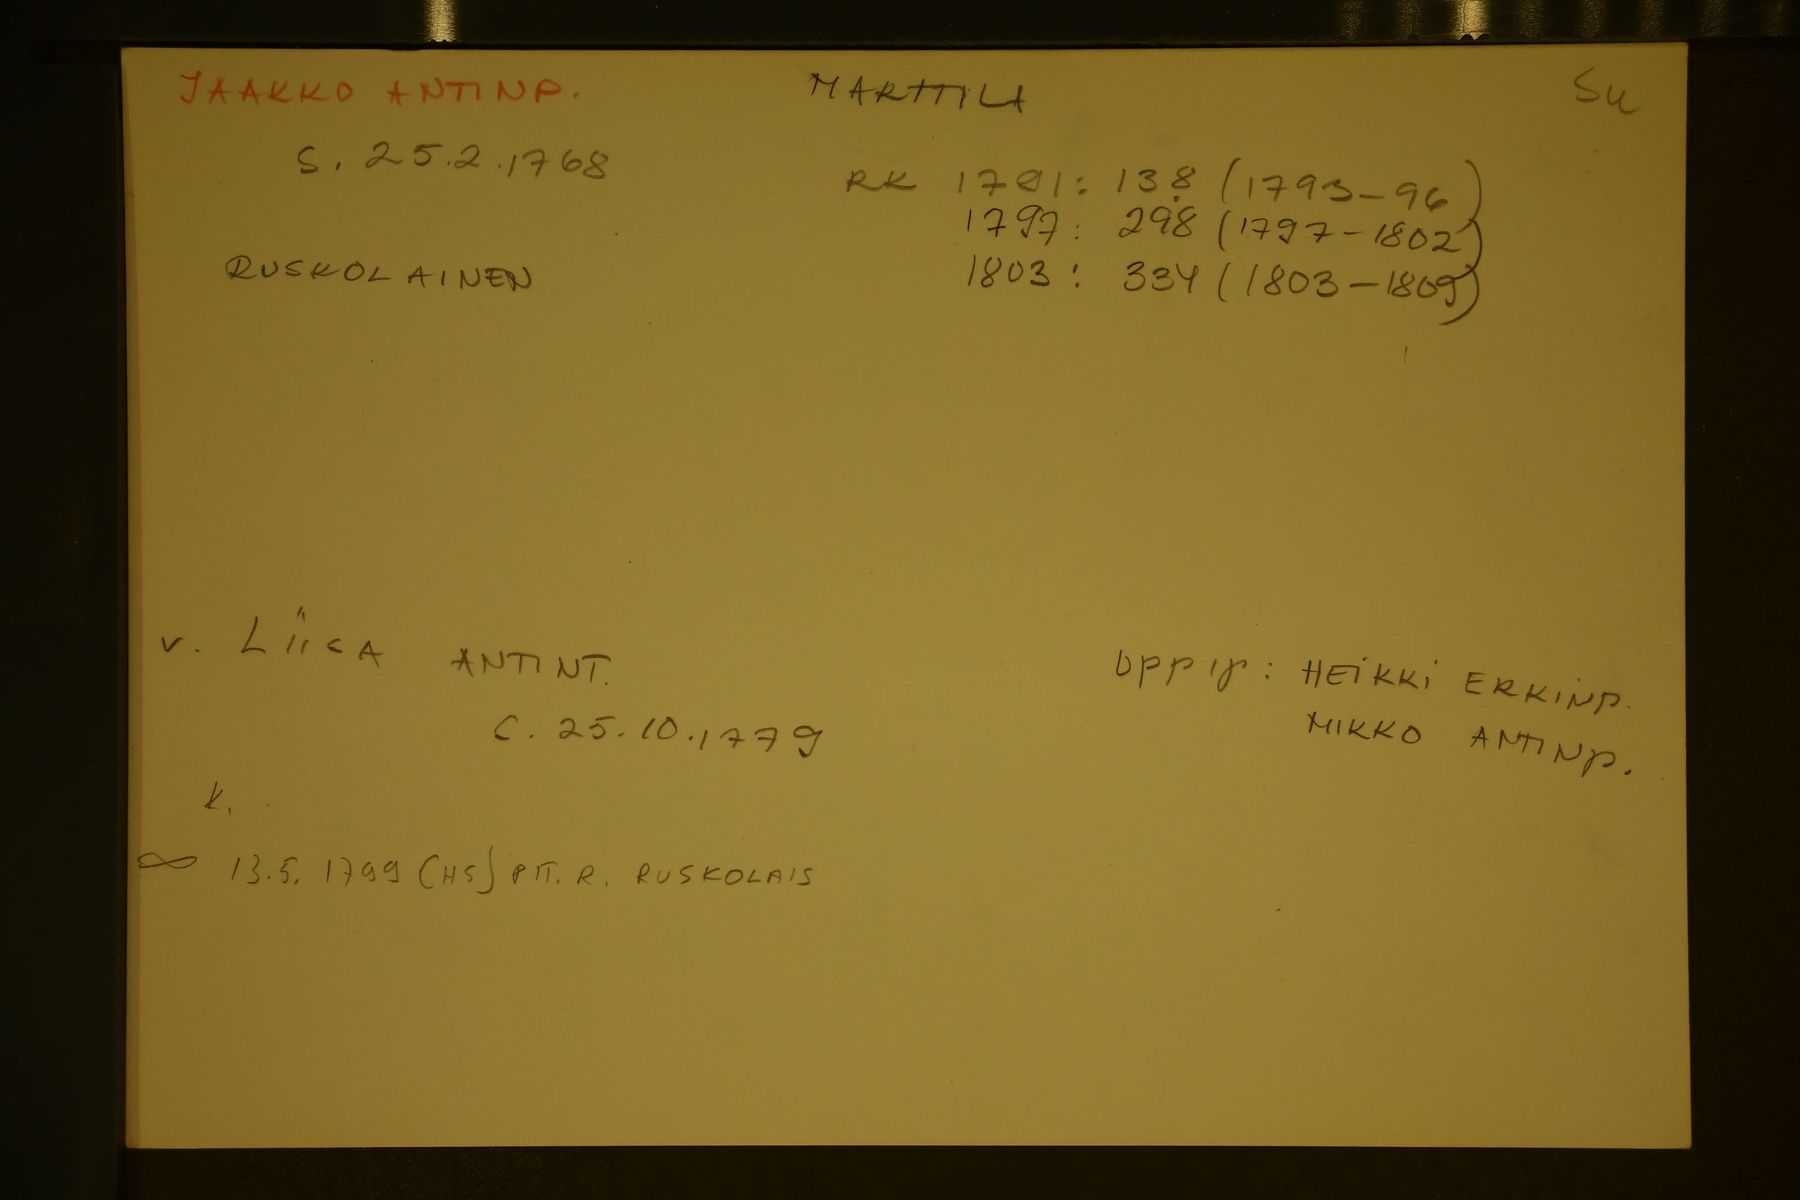 JAAKKO ANTINP. MARTTILA Su
S. 25.2.1768
RK 1791: 138 (1793-96)
1797: 298 (1797-1802)
RUSKOLAINEN
1803: 334 (1803-1809)
v. LiiSA ANTINT.
S. 25.10.1779
OPPIP: HEIKKI ERKINP.
MIKKO ANTINP.
K.
∞ 13.5. 1799 (HS) PIT. R. RUSKOLAIS